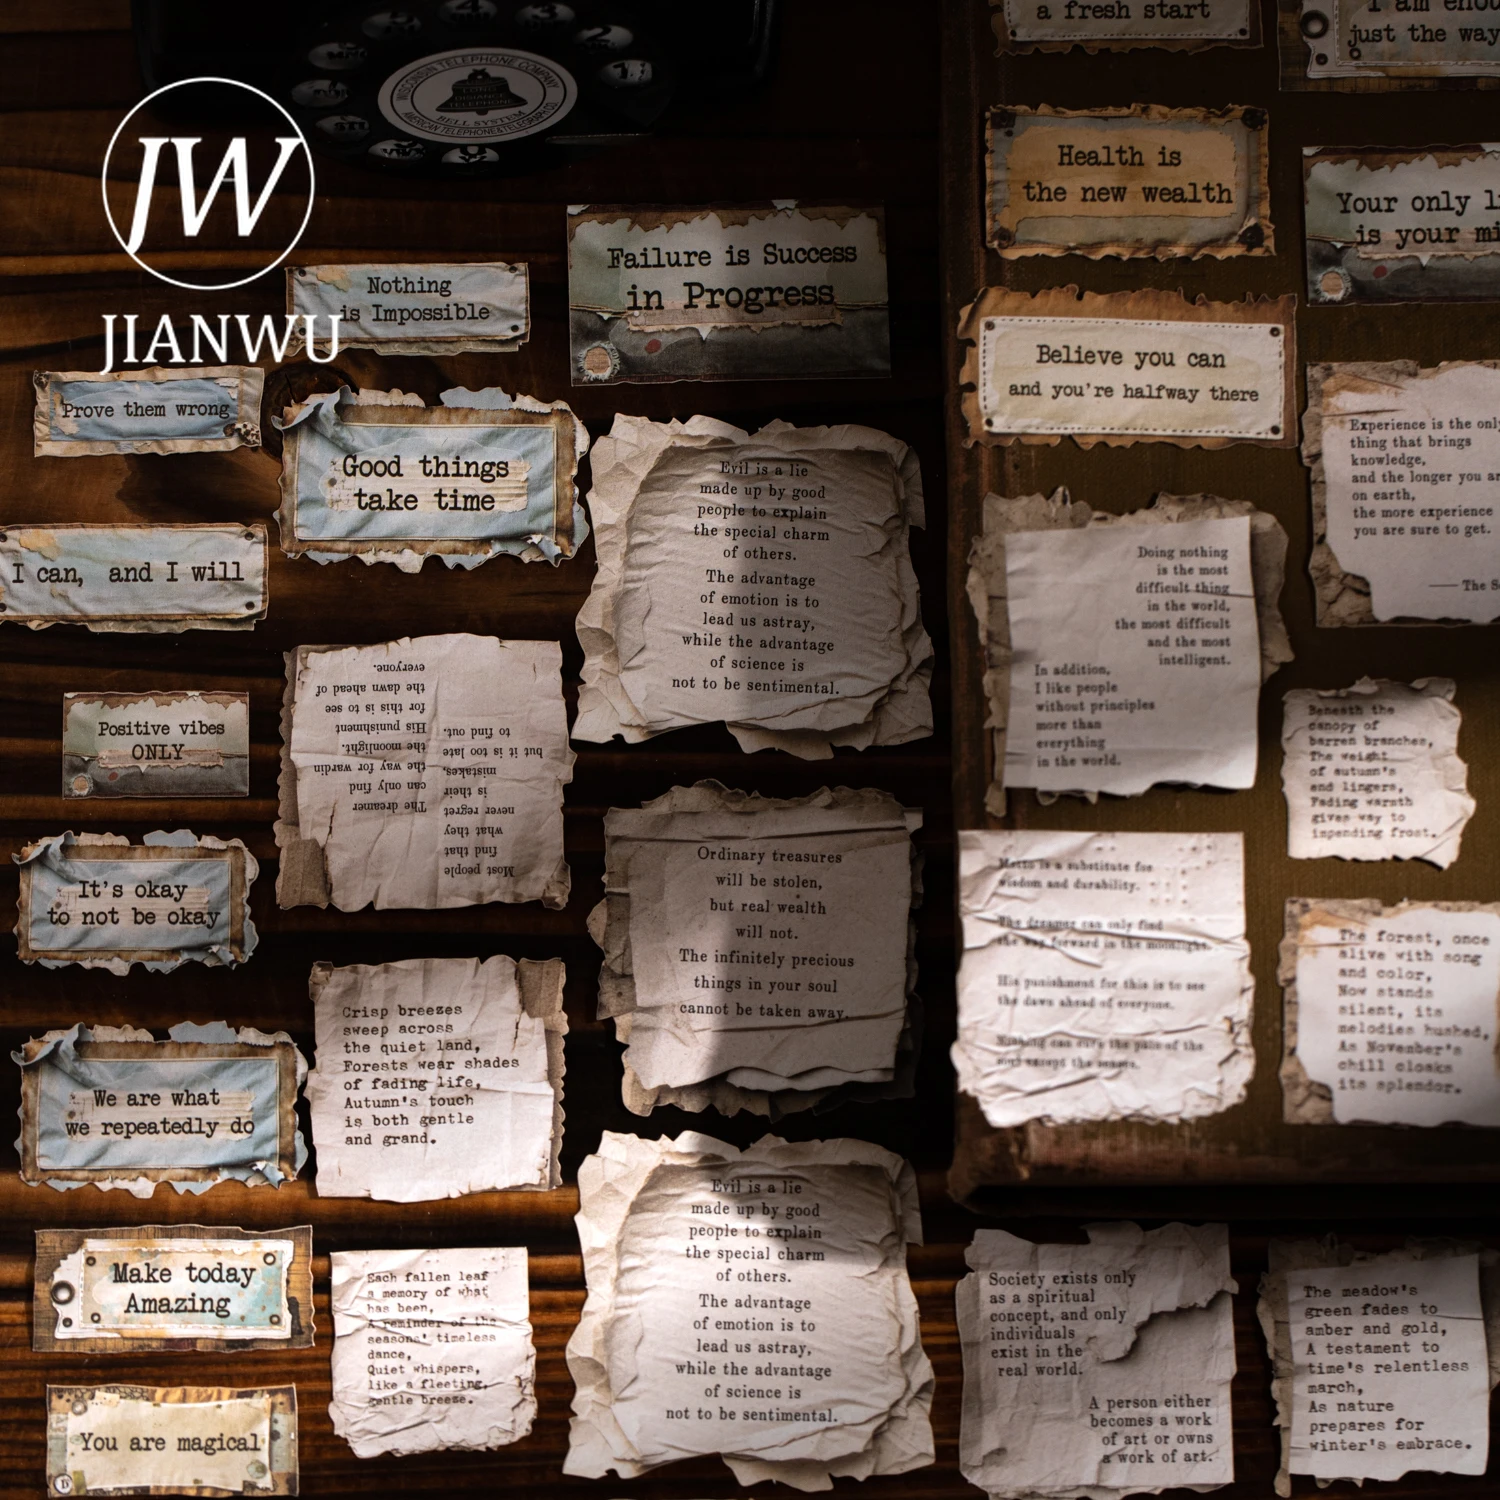 JW
JIANWU
WISCONSIN TELEPHONE COMPANY
LONG
DISTANCE
TELEPHONE
BELL SYSTEM
AMERICAN TELEPHONE & TELEGRAPH CO.
4
3
2
1
Nothing
is Impossible
Prove them wrong
Good things
take time
I can, and I will
Positive vibes
ONLY
It's okay
to not be okay
We are what
we repeatedly do
Make today
Amazing
You are magical
Most people
find that
what they
never regret
is their
mistakes,
but it is too late
to find out.
The dreamer
can only find
the way for wardin
the moonlight.
His punishment
for this is to see
the dawn ahead of
everyone.
Crisp breezes
sweep across
the quiet land,
Forests wear shades
of fading life,
Autumn's touch
is both gentle
and grand.
Each fallen leaf
a memory of what
has been,
A reminder of the
seasons' timeless
dance,
Quiet whispers,
like a fleeting,
gentle breeze.
Failure is Success
in Progress
Evil is a lie
made up by good
people to explain
the special charm
of others.
The advantage
of emotion is to
lead us astray,
while the advantage
of science is
not to be sentimental.
Ordinary treasures
will be stolen,
but real wealth
will not.
The infinitely precious
things in your soul
cannot be taken away.
Evil is a lie
made up by good
people to explain
the special charm
of others.
The advantage
of emotion is to
lead us astray,
while the advantage
of science is
not to be sentimental.
a fresh start
Health is
the new wealth
Believe you can
and you're halfway there
Doing nothing
is the most
difficult thing
in the world,
the most difficult
and the most
intelligent.
In addition,
I like people
without principles
more than
everything
in the world.
Metto is a substitute for
wisdom and durability.
The dreamer can only find
the way forward in the moonlight.
His punishment for this is to see
the dawn ahead of everyone.
Nothing can cure the pain of the
soul except the senses.
Society exists only
as a spiritual
concept, and only
individuals
exist in the
real world.
A person either
becomes a work
of art or owns
a work of art.
I am enou
just the way
Your only li
is your mi
Experience is the only
thing that brings
knowledge,
and the longer you ar
on earth,
the more experience
you are sure to get.
—— The S
Beneath the
canopy of
barren branches,
The weight
of autumn's
end lingers,
Fading warmth
gives way to
inpending frost.
The forest, once
alive with song
and color,
Now stands
silent, its
melodies hushed,
As November's
chill cloaks
its splendor.
The meadow's
green fades to
amber and gold,
A testament to
time's relentless
march,
As nature
prepares for
winter's embrace.